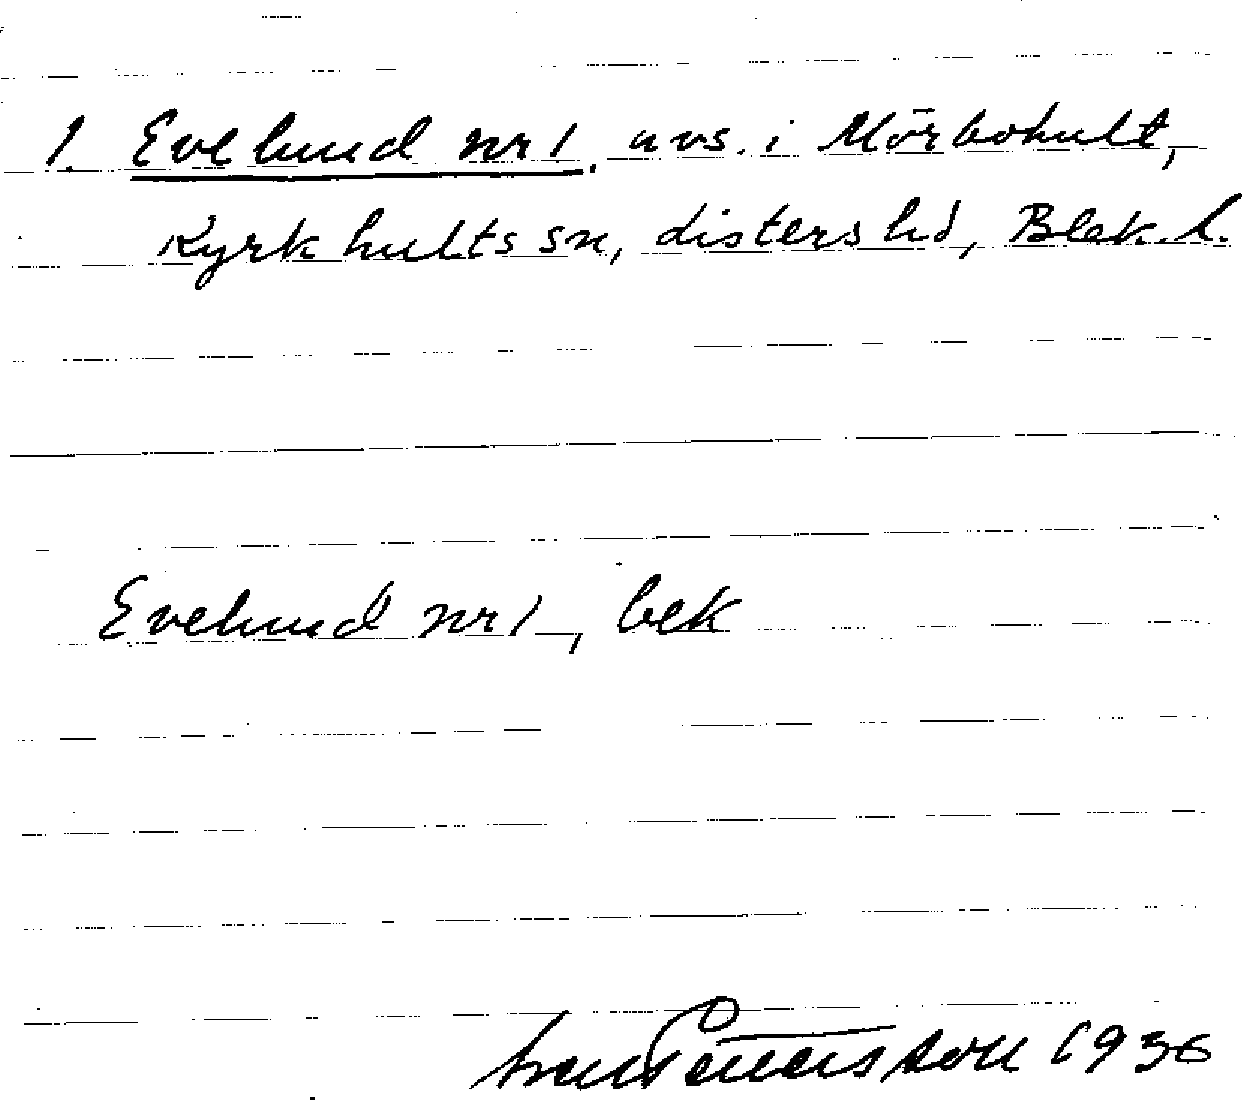 1. Evelund nr 1. avs. i Mörbohult,
Kyrkhults sn, Listers hd, Blek. l.
Evelund nr 1, bek
Pettersson 1936